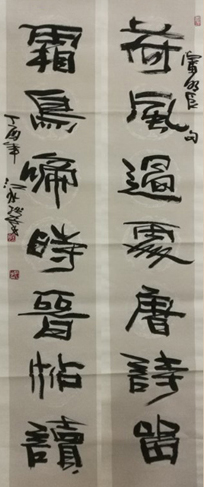 荷風過處唐詩留
句
霜鳥啼時晉帖讀
丁酉年